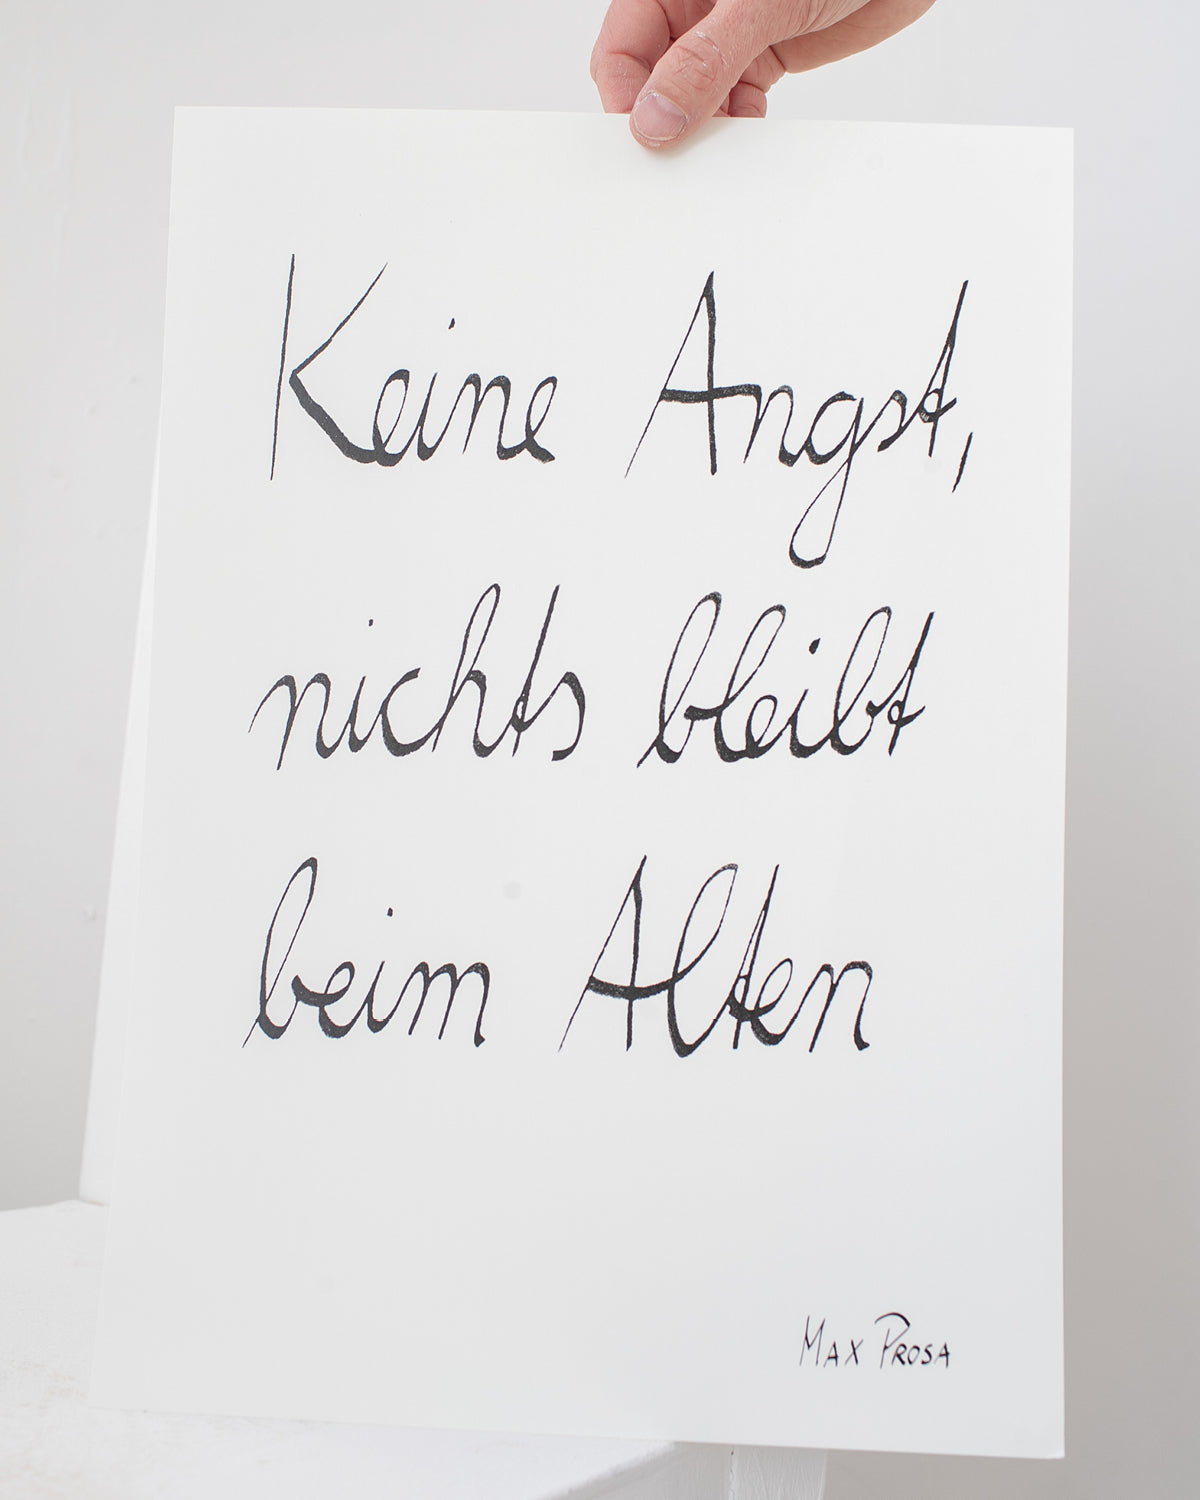 Keine Angst,
nichts bleibt
beim Alten
MAX PROSA